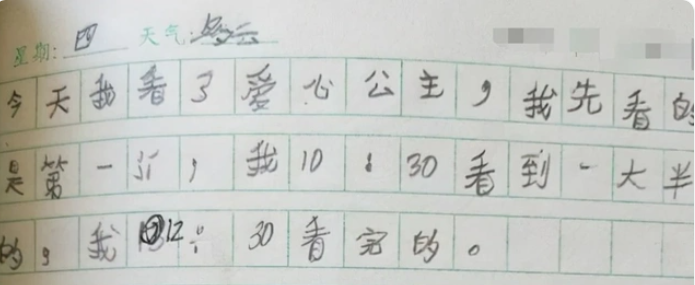 星期: 四 天气: 多云
今天我看了爱心公主，我先看的
是第一ji，我10：30看到一大半
的，我12：30看完的。